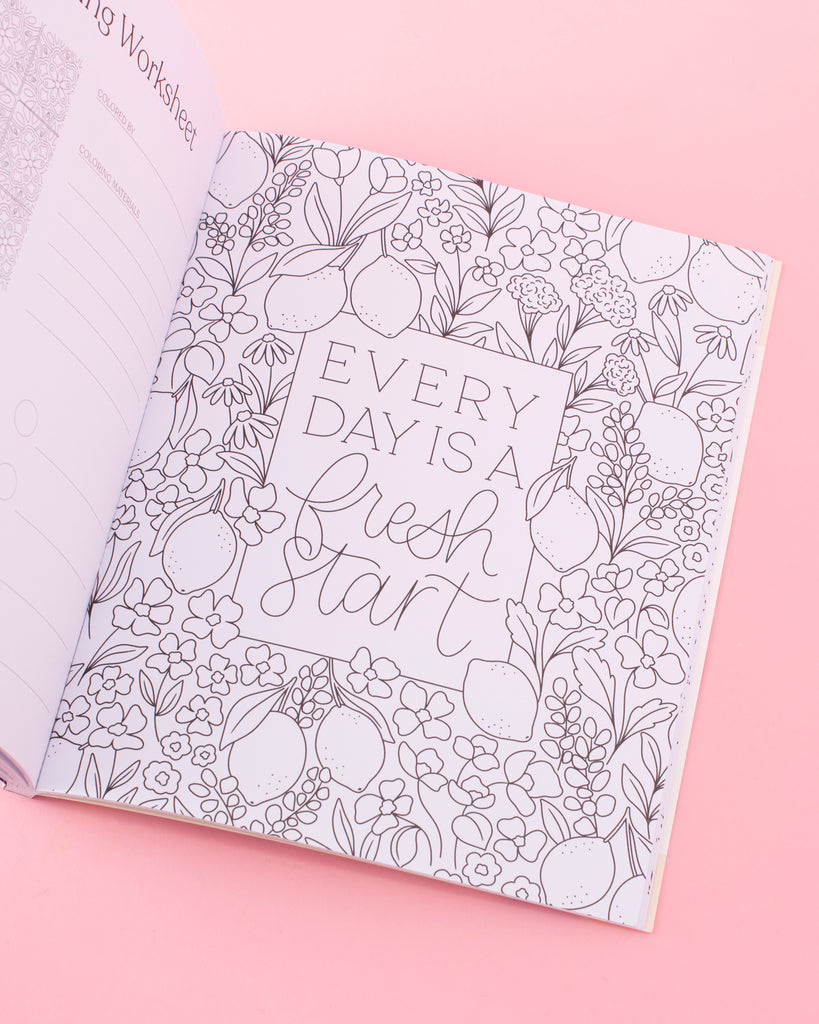 Worksheet
COLORED BY
COLORING MATERIALS
EVERY
DAY IS A
fresh
start